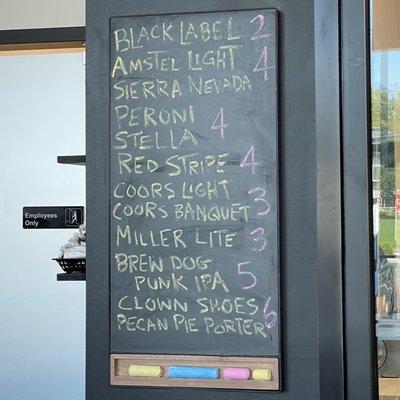 BLACK LABEL 2
AMSTEL LIGHT 4
SIERRA NEVADA
PERONI 4
STELLA
RED STRIPE 4
COORS LIGHT 3
COORS BANQUET
MILLER LITE 3
BREW DOG
PUNK IPA 5
CLOWN SHOES 6
PECAN PIE PORTER
Employees
Only